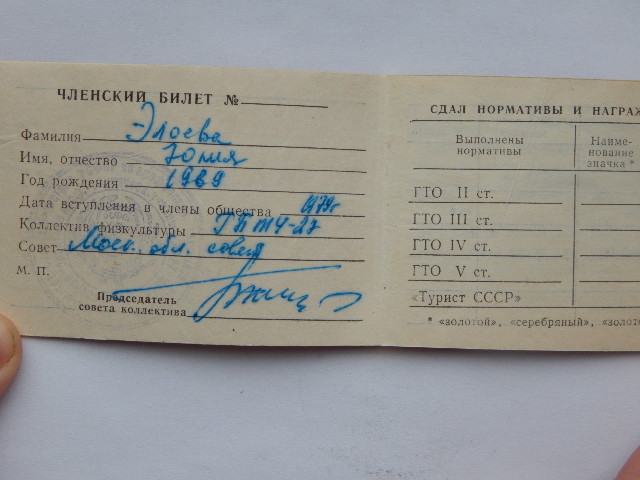 ЧЛЕНСКИЙ БИЛЕТ №
Фамилия Элоева
Имя, отчество Юлия
Год рождения 1969
Дата вступления в члены общества 1979г
Коллектив физкультуры ГПТУ-27
Совет Моск. обл. совет
М. П.
Председатель
совета коллектива
СДАЛ НОРМАТИВЫ И НАГРАЖ
Выполнены
нормативы
Наиме-
нование
значка *
ГТО II ст.
ГТО III ст.
ГТО IV ст.
ГТО V ст.
«Турист СССР»
* «золотой», «серебряный», «золот